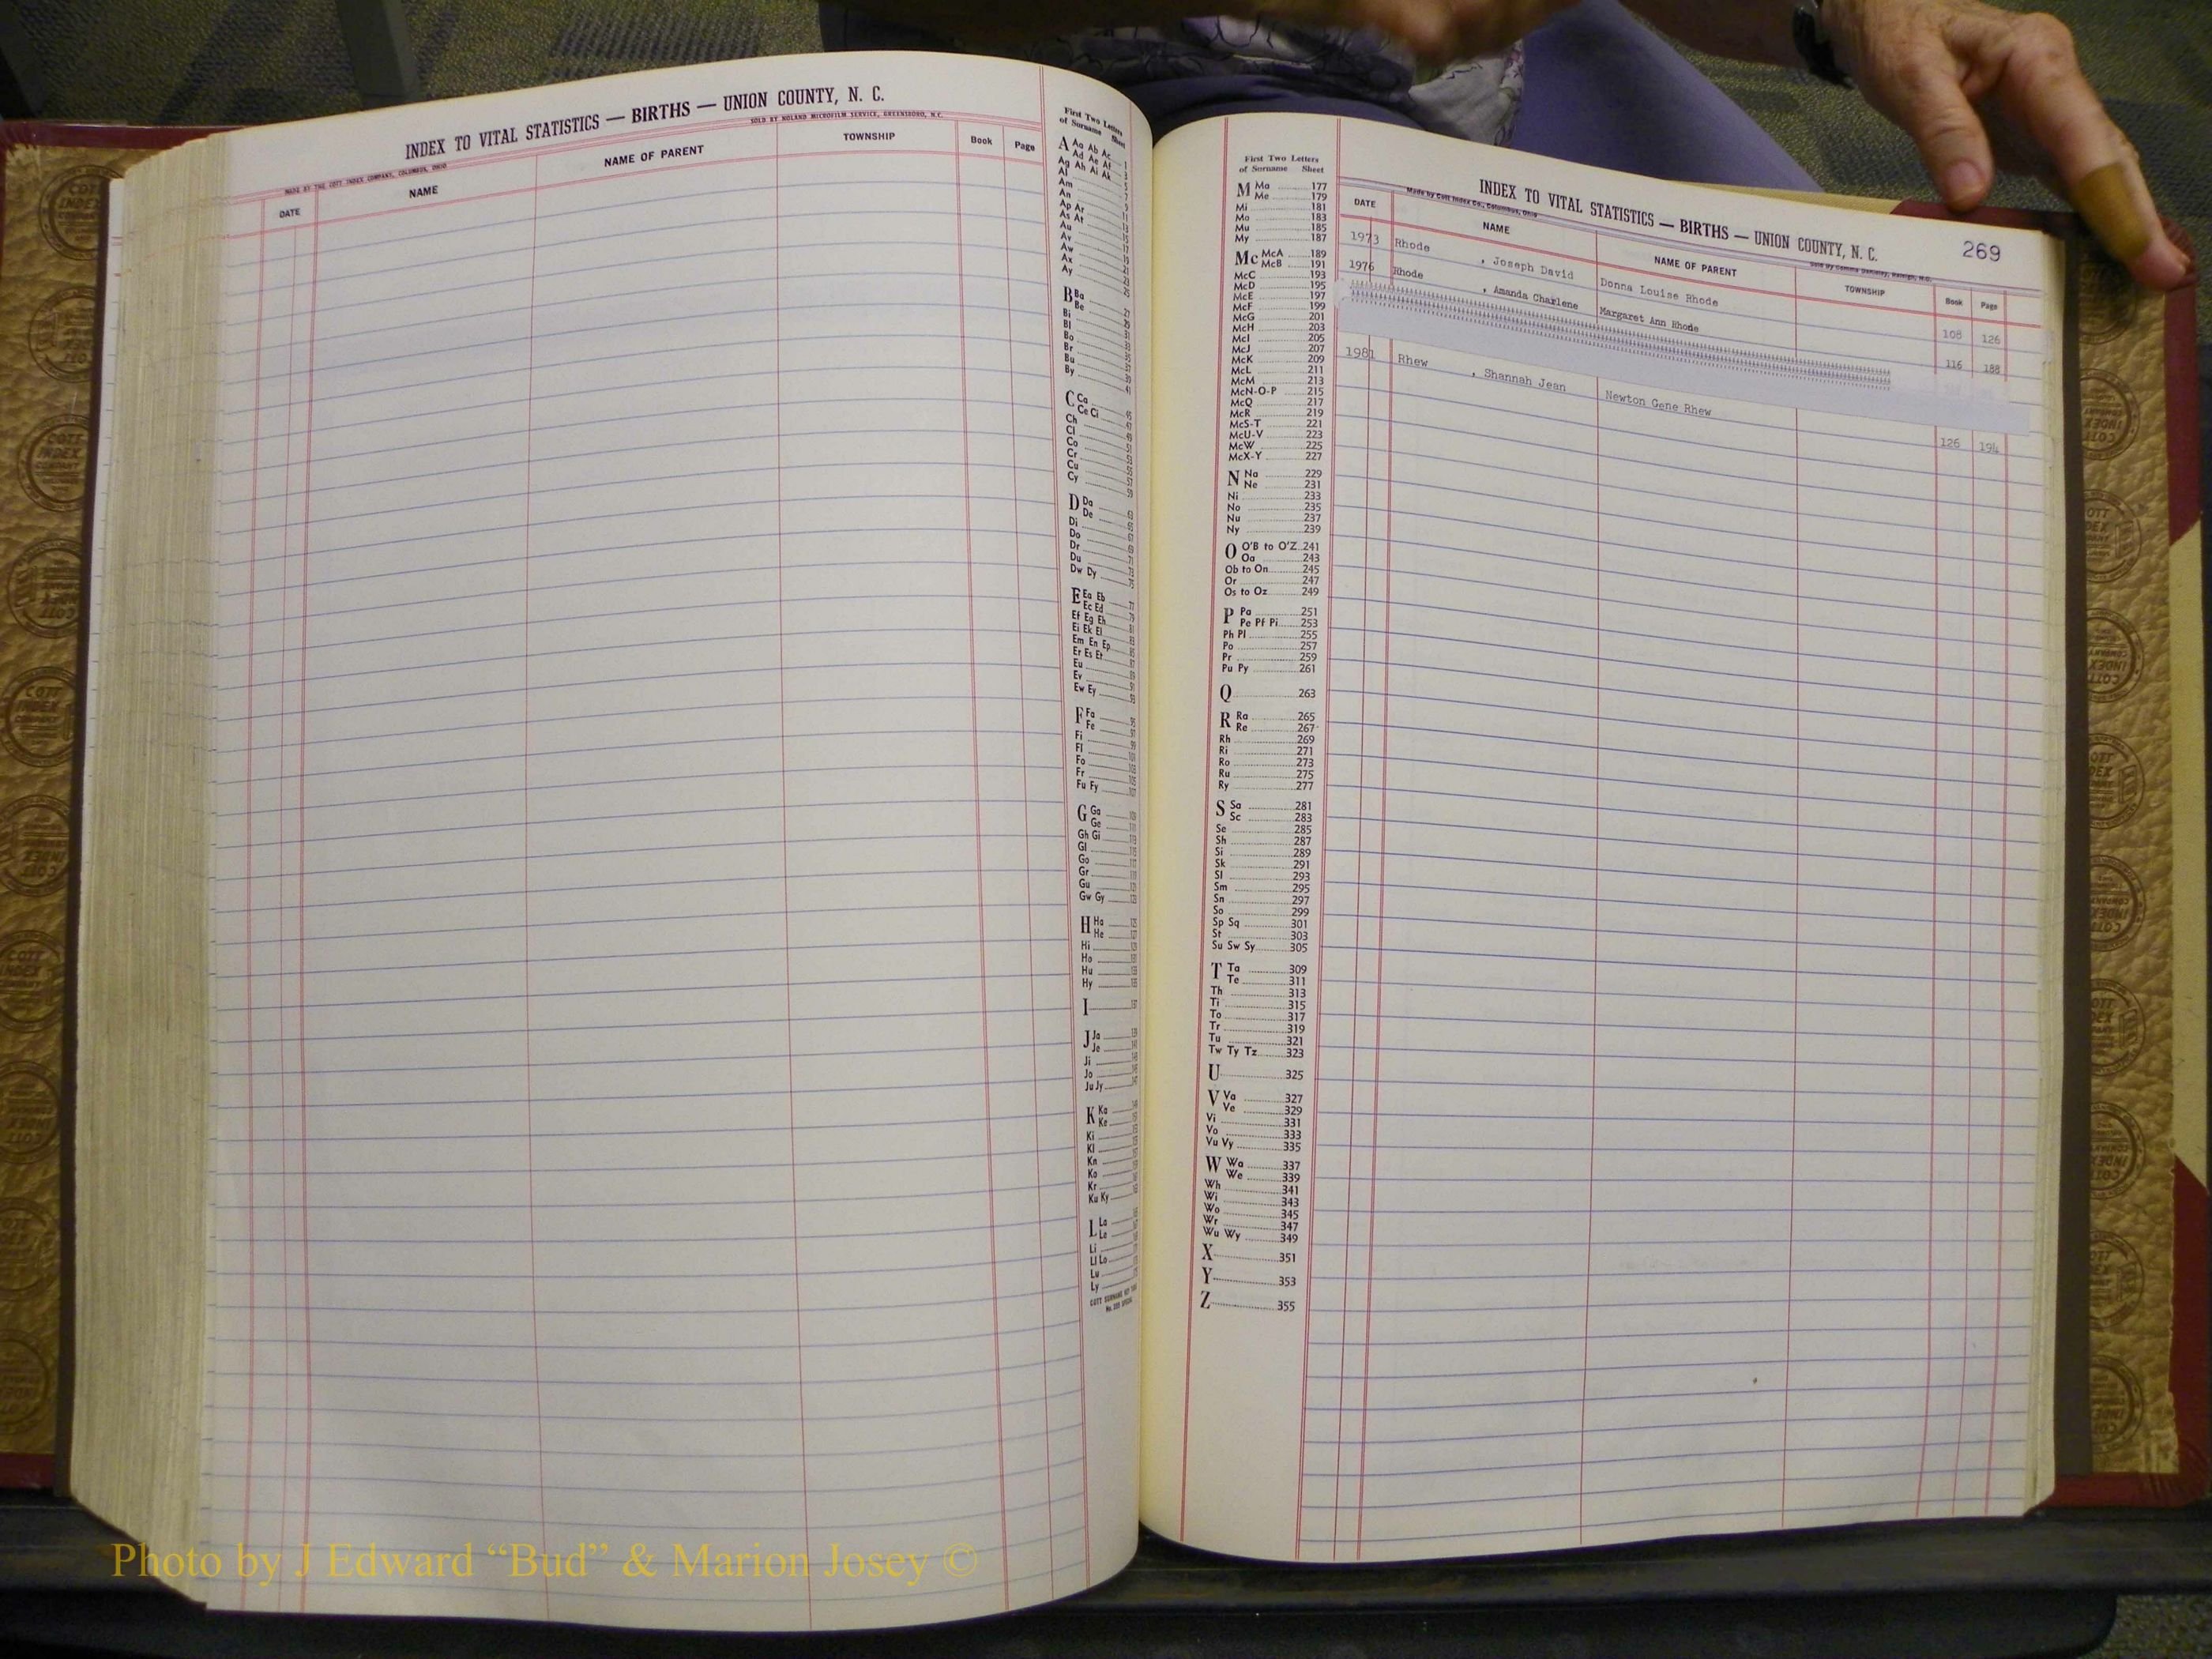 INDEX TO VITAL STATISTICS — BIRTHS — UNION COUNTY, N. C.
MADE BY THE COTT INDEX COMPANY, COLUMBUS, OHIO
SOLD BY NOLAND MICROFILM SERVICE, GREENSBORO, N.C.
DATE NAME NAME OF PARENT TOWNSHIP Book Page
First Two Letters
of Surname Sheet
A Aa Ab Ac
Ad Ae Af
Ag Ah Ai Ak
Al
Am
An
Ap Ar
As At
Au
Av
Aw
Ax
Ay
B Ba
Be
Bi
Bl
Bo
Br
Bu
By
C Ca
Ce Ci
Ch
Cl
Co
Cr
Cu
Cy
D Da
De
Di
Do
Dr
Du
Dw Dy
E Ea Eb
Ec Ed
Ef Eg Eh
Ei Ek El
Em En Ep
Er Es Et
Eu
Ev
Ew Ey
F Fa
Fe
Fi
Fl
Fo
Fr
Fu Fy
G Ga
Ge
Gh Gi
Gl
Go
Gr
Gu
Gw Gy
H Ha
He
Hi
Ho
Hu
Hy
I
J Ja
Je
Ji
Jo
Ju Jy
K Ka
Ke
Ki
Kl
Kn
Ko
Kr
Ku Ky
L La
Le
Li
Ll Lo
Lu
Ly
First Two Letters
of Surname Sheet
M Ma 177
Me 179
Mi 181
Mo 183
Mu 185
My 187
Mc McA 189
McB 191
McC 193
McD 195
McE 197
McF 199
McG 201
McH 203
McI 205
McJ 207
McK 209
McL 211
McM 213
McN-O-P 215
McQ 217
McR 219
McS-T 221
McU-V 223
McW 225
McX-Y 227
N Na 229
Ne 231
Ni 233
No 235
Nu 237
Ny 239
O O'B to O'Z 241
Oa 243
Ob to On 245
Or 247
Os to Oz 249
P Pa 251
Pe Pf Pi 253
Ph Pl 255
Po 257
Pr 259
Pu Py 261
Q 263
R Ra 265
Re 267
Rh 269
Ri 271
Ro 273
Ru 275
Ry 277
S Sa 281
Sc 283
Se 285
Sh 287
Si 289
Sk 291
Sl 293
Sm 295
Sn 297
So 299
Sp Sq 301
St 303
Su Sw Sy 305
T Ta 309
Te 311
Th 313
Ti 315
To 317
Tr 319
Tu 321
Tw Ty Tz 323
U 325
V Va 327
Ve 329
Vi 331
Vo 333
Vu Vy 335
W Wa 337
We 339
Wh 341
Wi 343
Wo 345
Wr 347
Wu Wy 349
X 351
Y 353
Z 355
INDEX TO VITAL STATISTICS — BIRTHS — UNION COUNTY, N. C. 269
Made by Cott Index Co., Columbus, Ohio
DATE NAME NAME OF PARENT TOWNSHIP Book Page
1973 Rhode , Joseph David Donna Louise Rhode 108 126
1976 Rhode , Amanda Charlene Margaret Ann Rhode 116 188
1981 Rhew , Shannah Jean Newton Gene Rhew 126 194
COTT
INDEX
COMPANY
Photo by J Edward “Bud” & Marion Josey ©